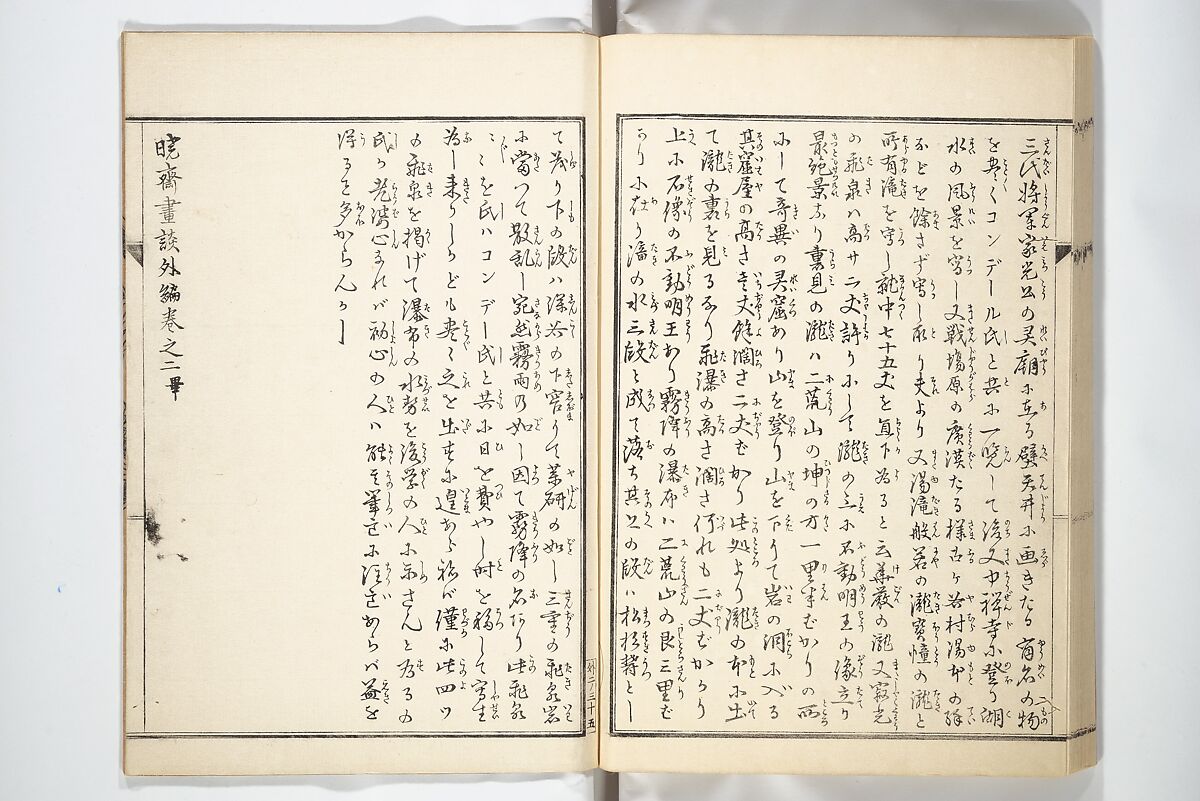 三代将軍家光公の霊廟に在る壁天井に画きたる有名の物
を悉くコンデール氏と共に一覧して後又中禅寺に登り湖
水の風景を写し又戦場原の廣漠たる様古ヶ谷村湯本の
などを餘さず写し取り夫より又湯滝般若の瀧寳幢の瀧と
所有滝を写し就中七十五丈を直下為ると云華厳の瀧又寂光
の飛泉ハ高サ二丈許りにして瀧の上に不動明王の像立り
最絶景なり裏見の瀧ハ二荒山の坤の方一里半むかりの所
にして奇異の霊窟あり山を登り山を下りて岩の洞に入る
其窟屋の高さ壱丈餘濶さ二丈むかり此処より瀧の本に出
て瀧の裏を見るなり飛瀑の高さ濶さ何れも二丈ばかり
上に石像の不動明王あり霧降の瀑布ハ二荒山の艮三里む
かりに在り瀧の水三段と成て落ち其上の段ハ松杉弊とし
て茂り下の段ハ深谷の下窄りて薬研の如し三重の飛泉岩
に當つて散乱し宛然霧雨の如し因て霧降の名あり此飛泉
ミを氏ハコンデー氏と共に日を費やし時を移して写生
為し来りしかども悉く之を出すに遑あらねバ僅に此四ツ
の飛泉を掲げて瀑布の水勢を後学の人に示さんと為るの
氏が老婆心なれバ初心の人ハ能其筆意に注意あらバ益を
得ること多からんかし
暁齋畫談外編巻之二畢
外二ノ三十五